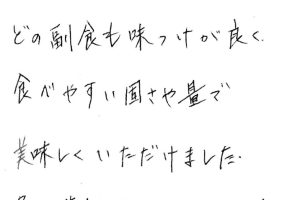 どの副食も味つけが良く.
食べやすい固さや量で
美味しくいただけました.